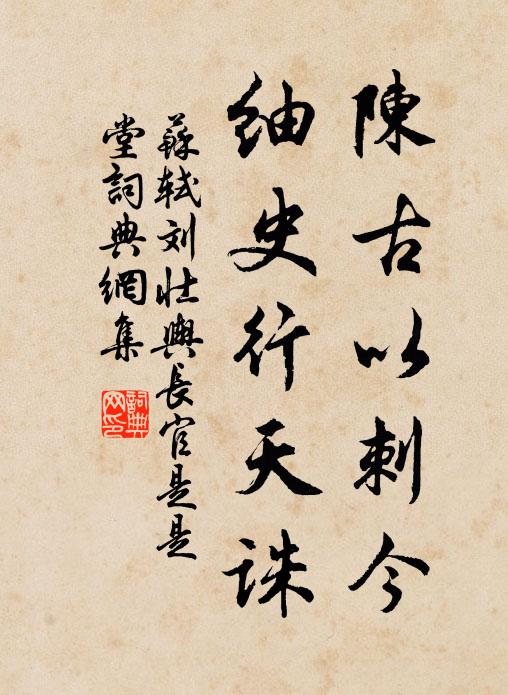 陳古以刺今
紬史行天誅
蘇軾刘壯輿長官是是
堂詞典網集
詞典
网印